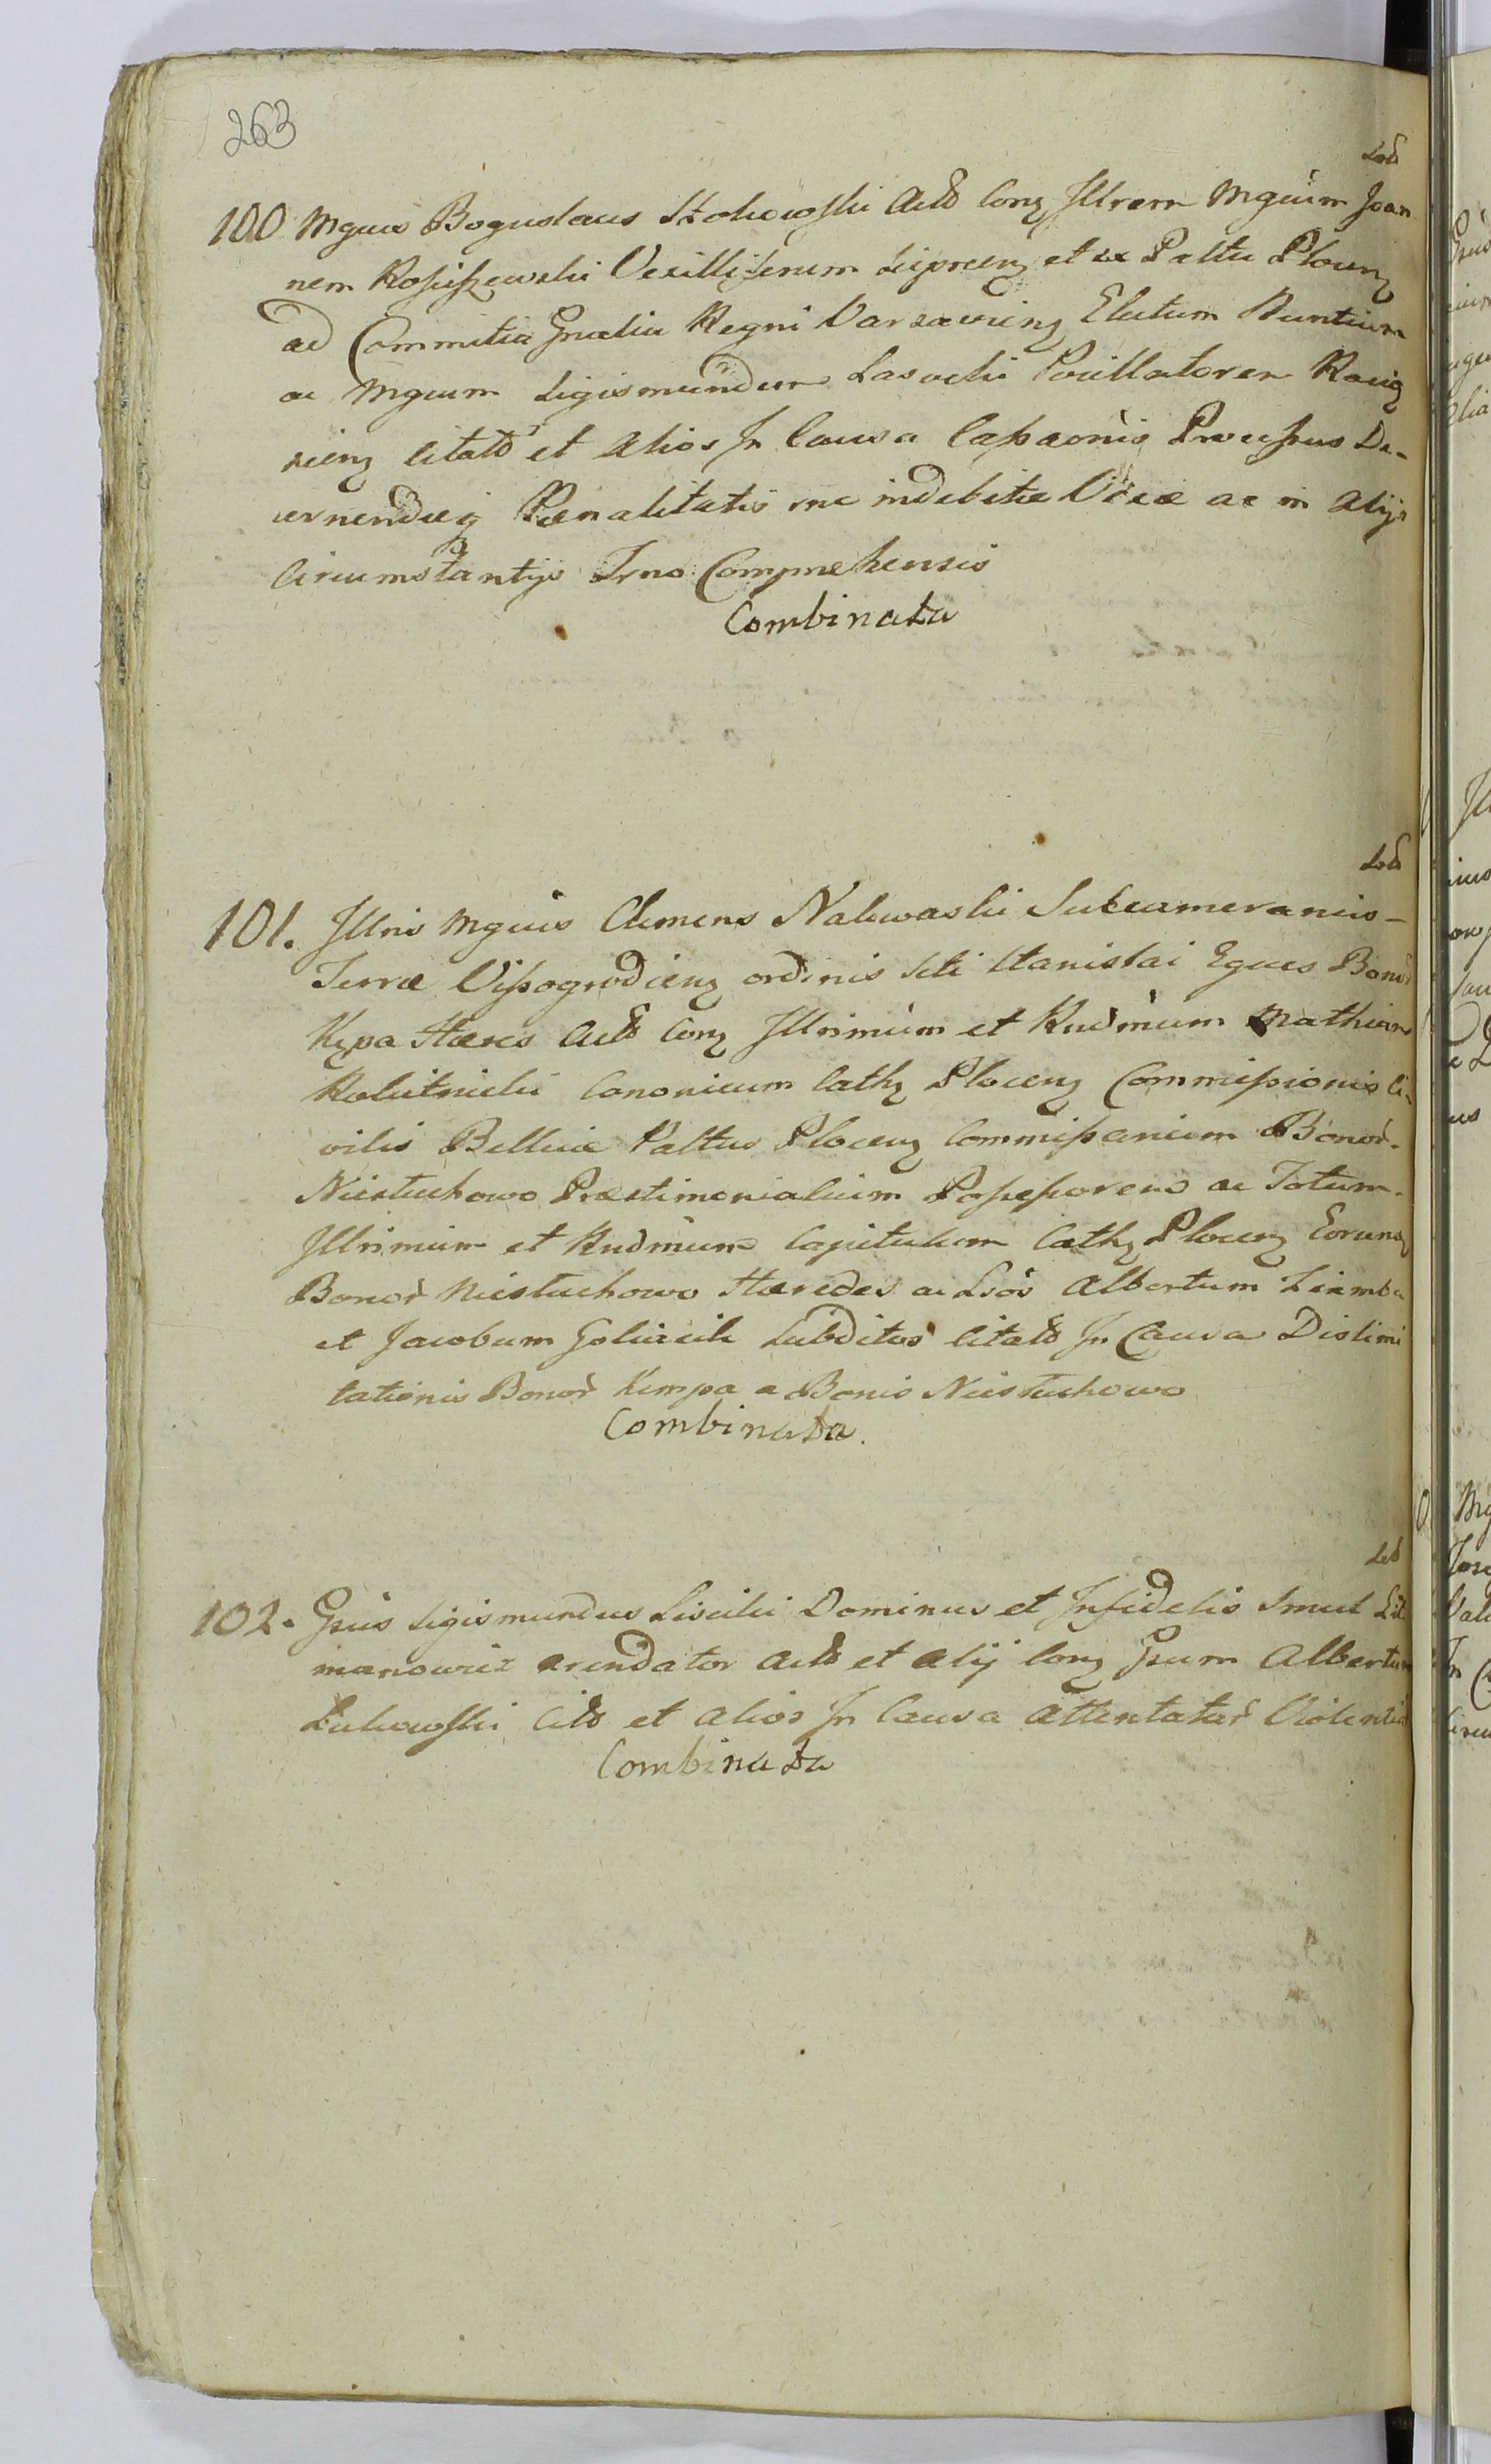 263
100 Mgnus Boguslaus Stokowski Acto Conq Illrem Mgnum Joan
nem Rosciszewski Vexilliferum Lipnenq et ex Paltu Plocenq
ad Commitia Gnalia Regni Varsavienq Electum Nuntium
ac Mgnum Sigismundum Lasocki Pocillatorem Raciq
zienq Citato et Alios In Causa Cassaonis Processus De-
cernendaeq Paenalitatis inc indebitae Vexae ac in Alijs
Circumstantijs Trno Comprehensis
Combinata
101. Illris Mgnus Clemens Nakwaski Subcamerarius
Terrae Vissogrodienq ordinis Scti Stanislai Eques Bonor
Kępa Haeres Acto Conq Illrimum et Rndmum Mathiam
Kolutnicki Canonicum Cathq Plocenq Commissionis Ci-
vilis Bellicae Paltus Plocenq Commissarium Bonor
Niestuchowo Praestimonialium Possessorem ac Totum
Illrimum et Rndmum Capitulum Cathq Plocenq Eorumq
Bonor Niestuchowo Haeredes ac Lsos Albertum Ziemba
et Jacobum Subditos Citato In Causa Dislimi
tationis Bonor Kempa a Bonis Niestuchowo
Combinata.
102. Gsus Sigismundus Lisicki Dominus et Infidelis Smul
manowicz arendator Acto et Alij Conq Gsum Albertum
Zukowski Cito et Alios In Causa Attentatar Violentiar
Combinata